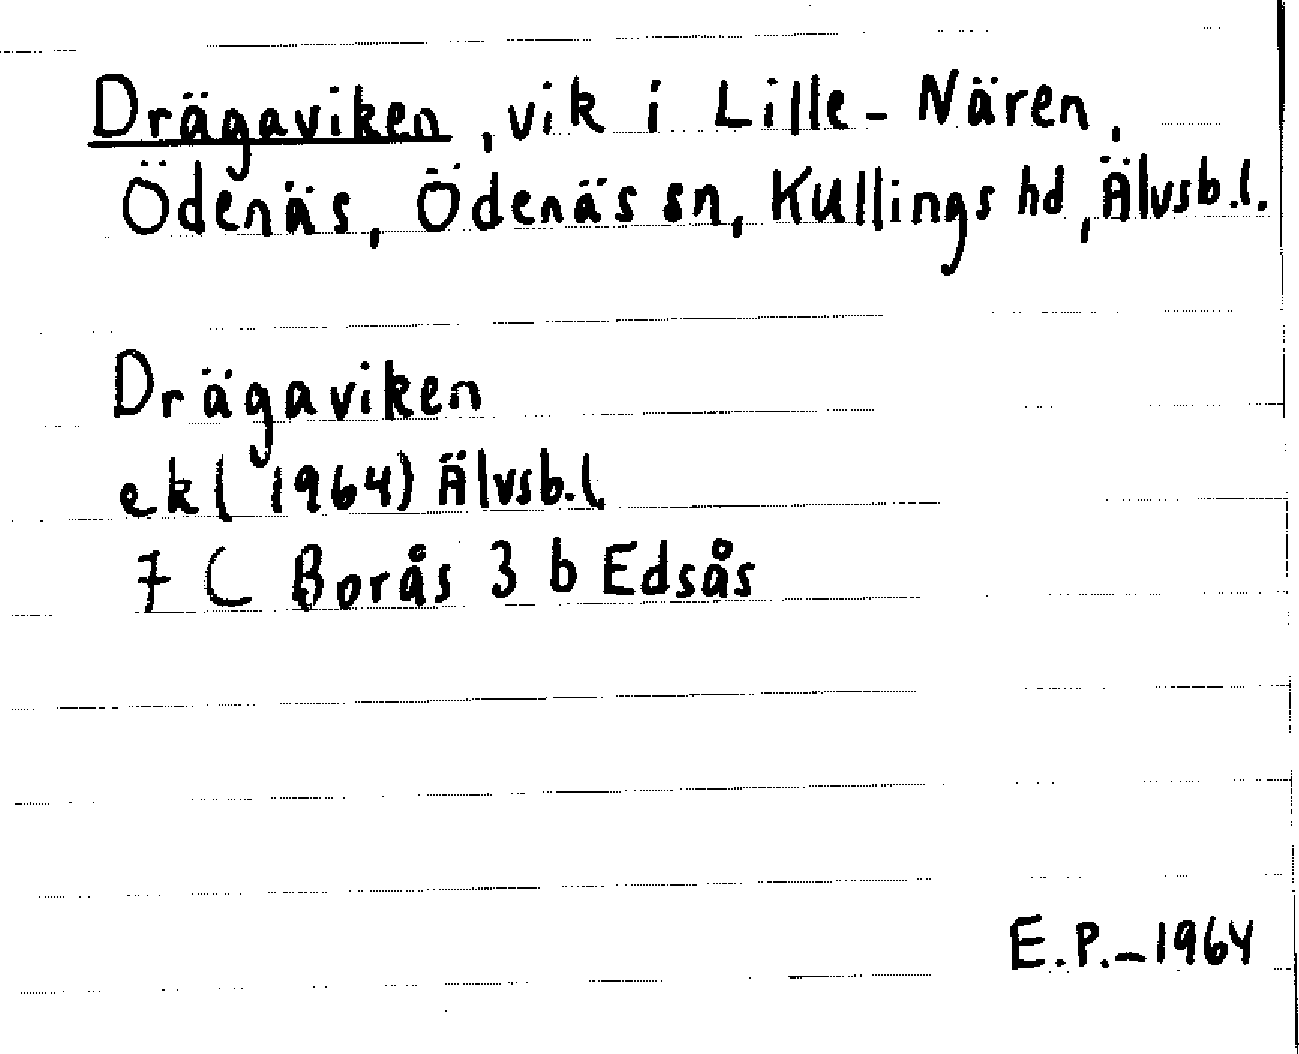 Drägaviken, vik i Lille-Nären,
Ödenäs, Ödenäs sn, Kullings hd, Älvsb.l.
Drägaviken
ek (1964) Älvsb.l.
7 C Borås 3 b Edsås
E.P.-1964